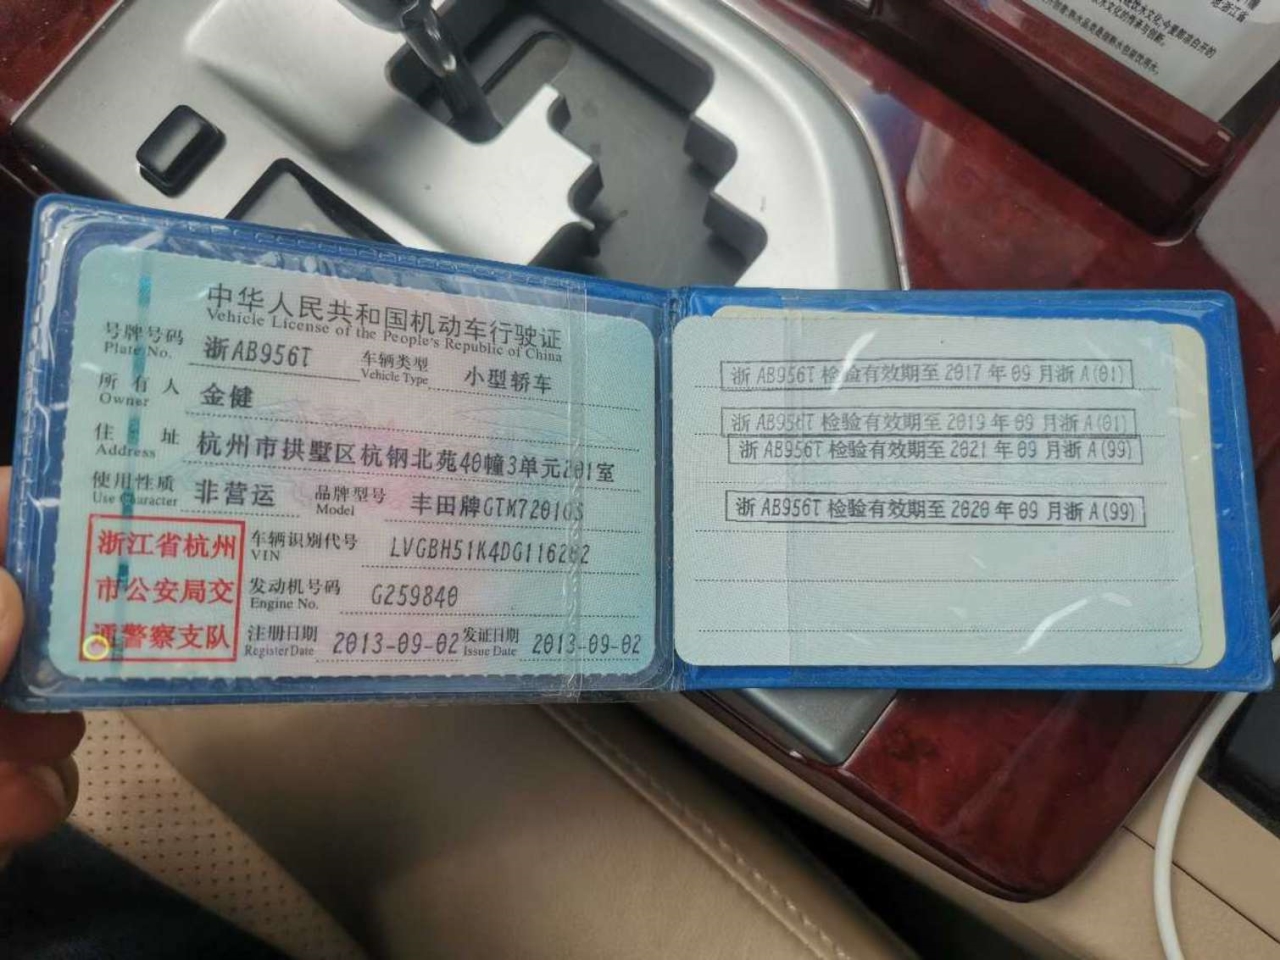 中华人民共和国机动车行驶证
Vehicle License of the People's Republic of China
号牌号码 浙AB956T 车辆类型 小型轿车
Plate No. Vehicle Type
所有人 金健
Owner
住址 杭州市拱墅区杭钢北苑40幢3单元201室
Address
使用性质 非营运 品牌型号 丰田牌GTM7201GS
Use Character Model
浙江省杭州
市公安局交
通警察支队
车辆识别代号 LVGBH51K4DG116202
VIN
发动机号码 G259840
Engine No.
注册日期 2013-09-02 发证日期 2013-09-02
Register Date Issue Date
浙AB956T检验有效期至2017年09月浙A(01)
浙AB956T检验有效期至2019年09月浙A(01)
浙AB956T检验有效期至2021年09月浙A(99)
浙AB956T检验有效期至2020年09月浙A(99)